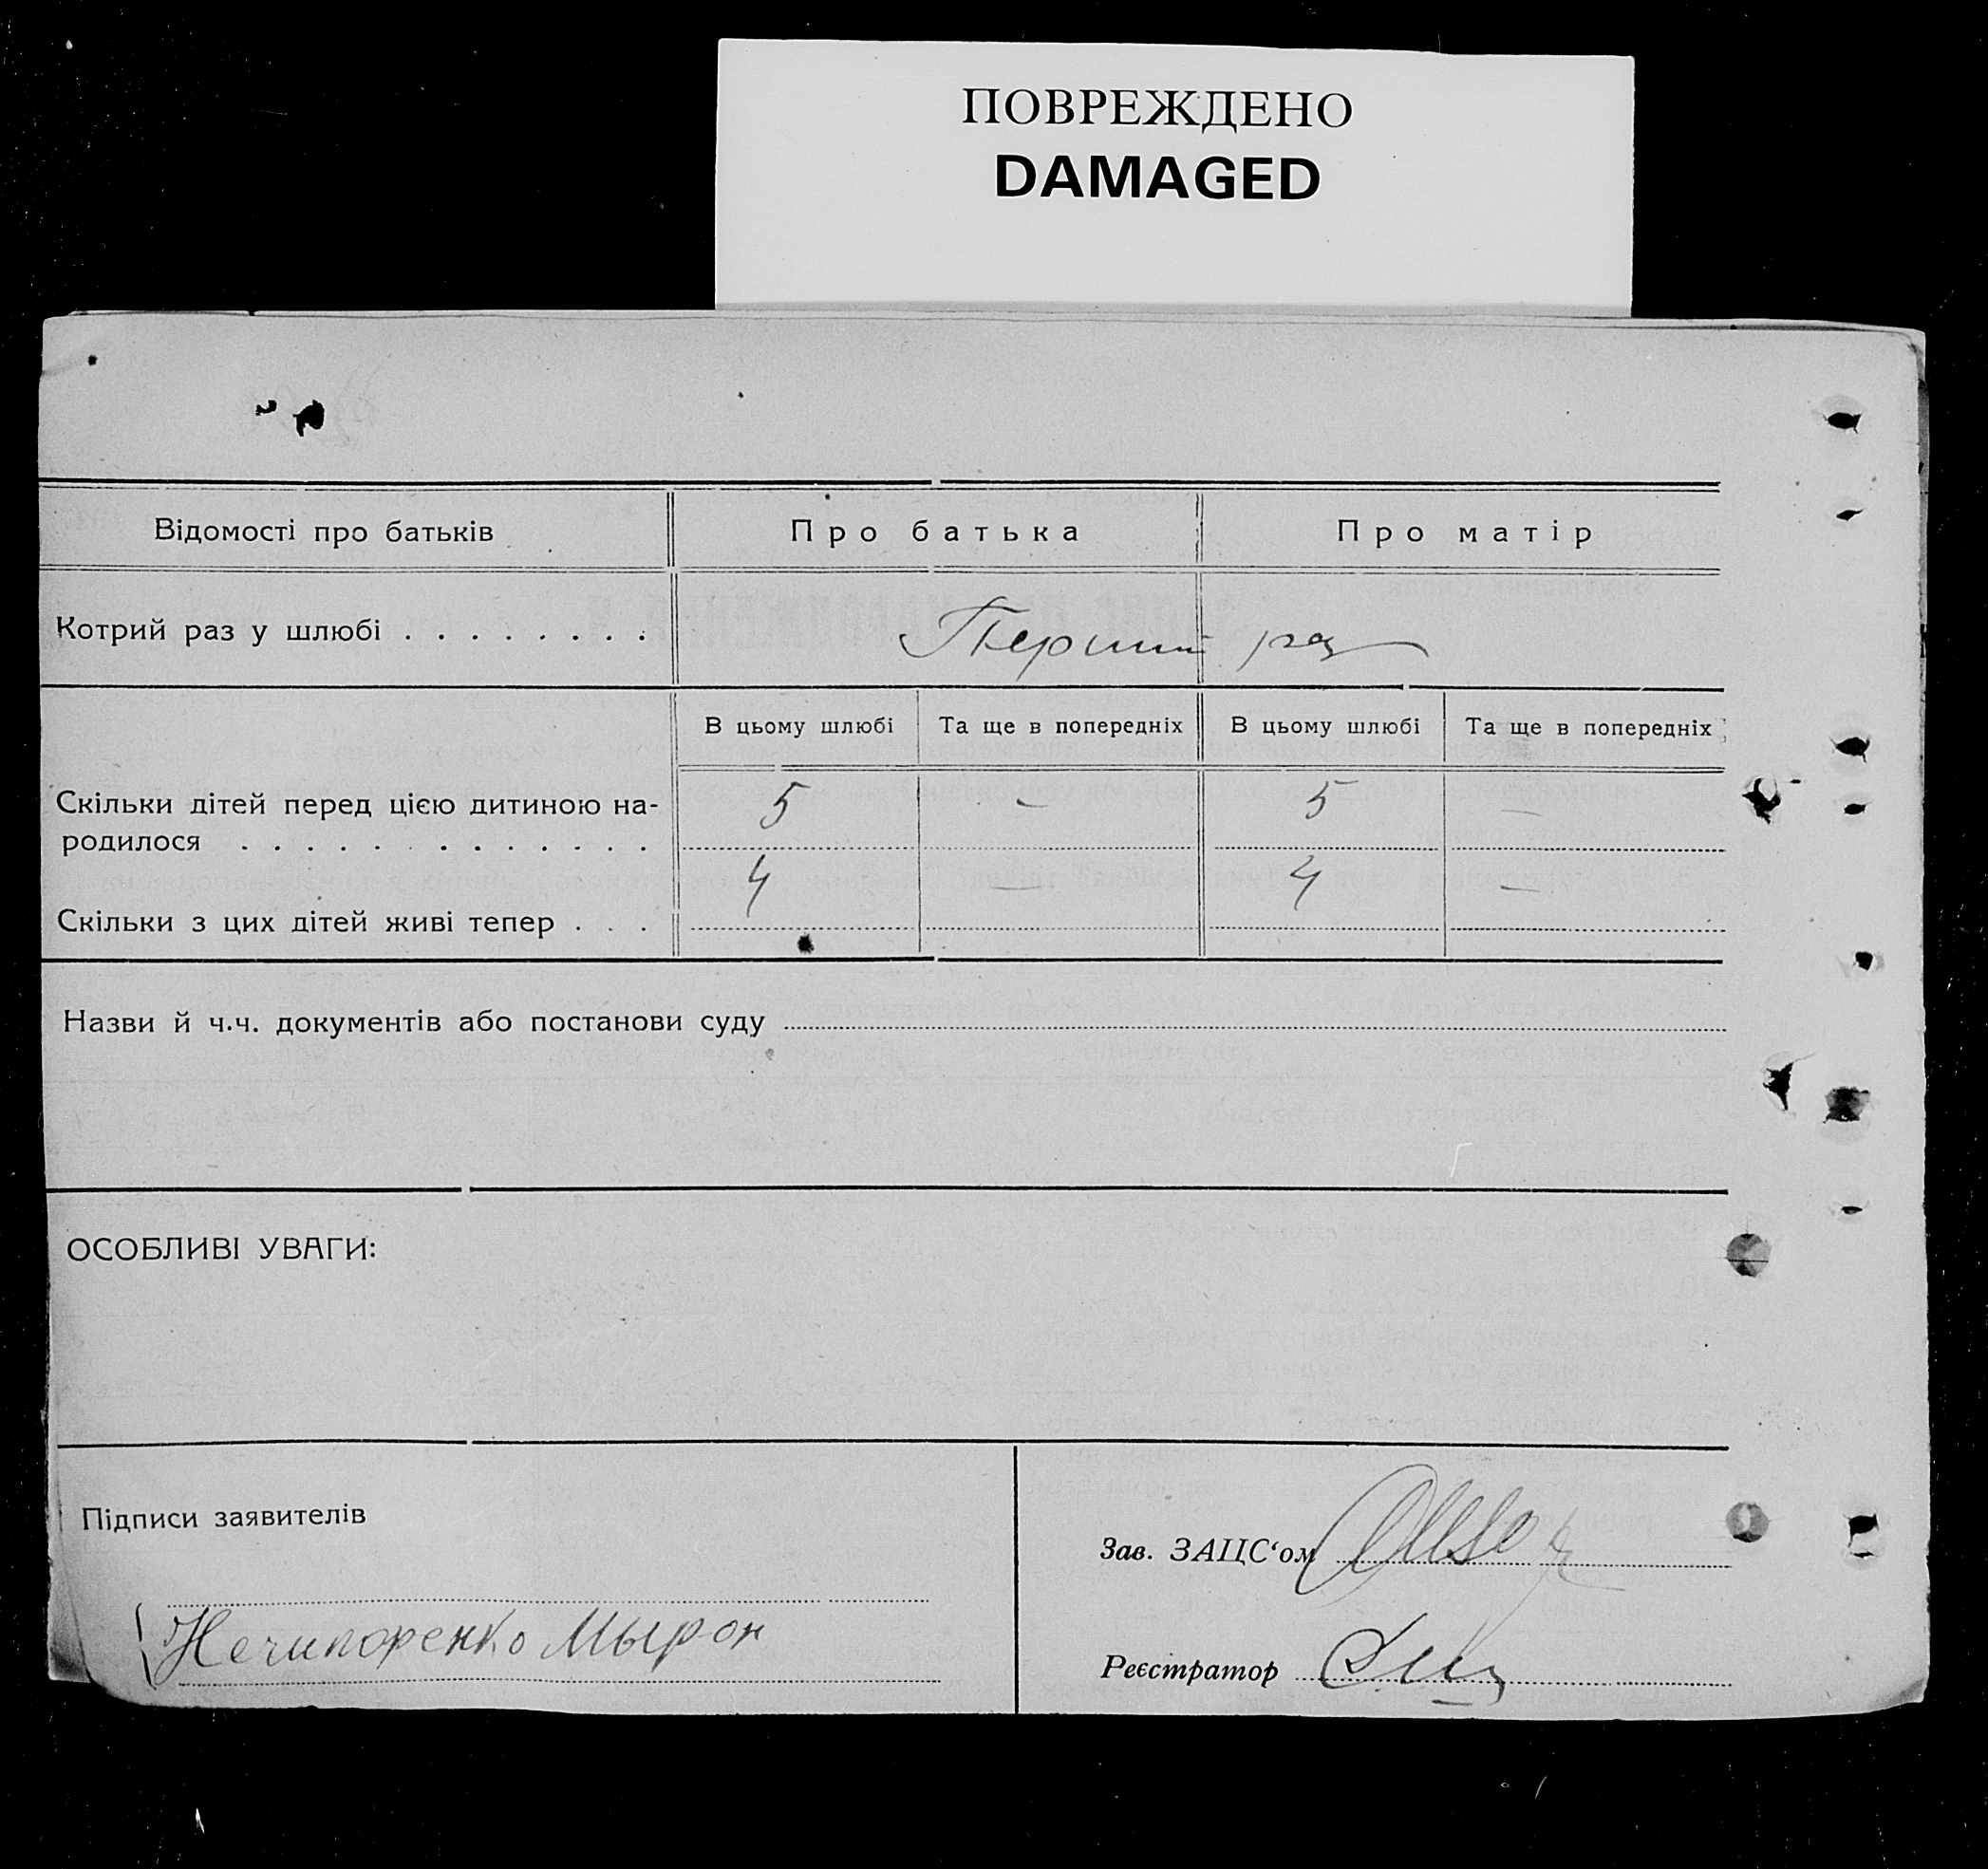 ПОВРЕЖДЕНО
DAMAGED
Відомості про батьків
Про батька
Про матір
Котрий раз у шлюбі . . . . . . . .
Перший раз
В цьому шлюбі
Та ще в попередніх
В цьому шлюбі
Та ще в попередніх
Скільки дітей перед цією дитиною на-
родилося . . . . . . . . . . . . .
5 — 5 —
Скільки з цих дітей живі тепер . . .
4 — 4 —
Назви й ч.ч. документів або постанови суду
ОСОБЛИВІ УВАГИ:
Підписи заявителів
Нечипоренко Мырон
Зав. ЗАЦС‘ом
Реєстратор